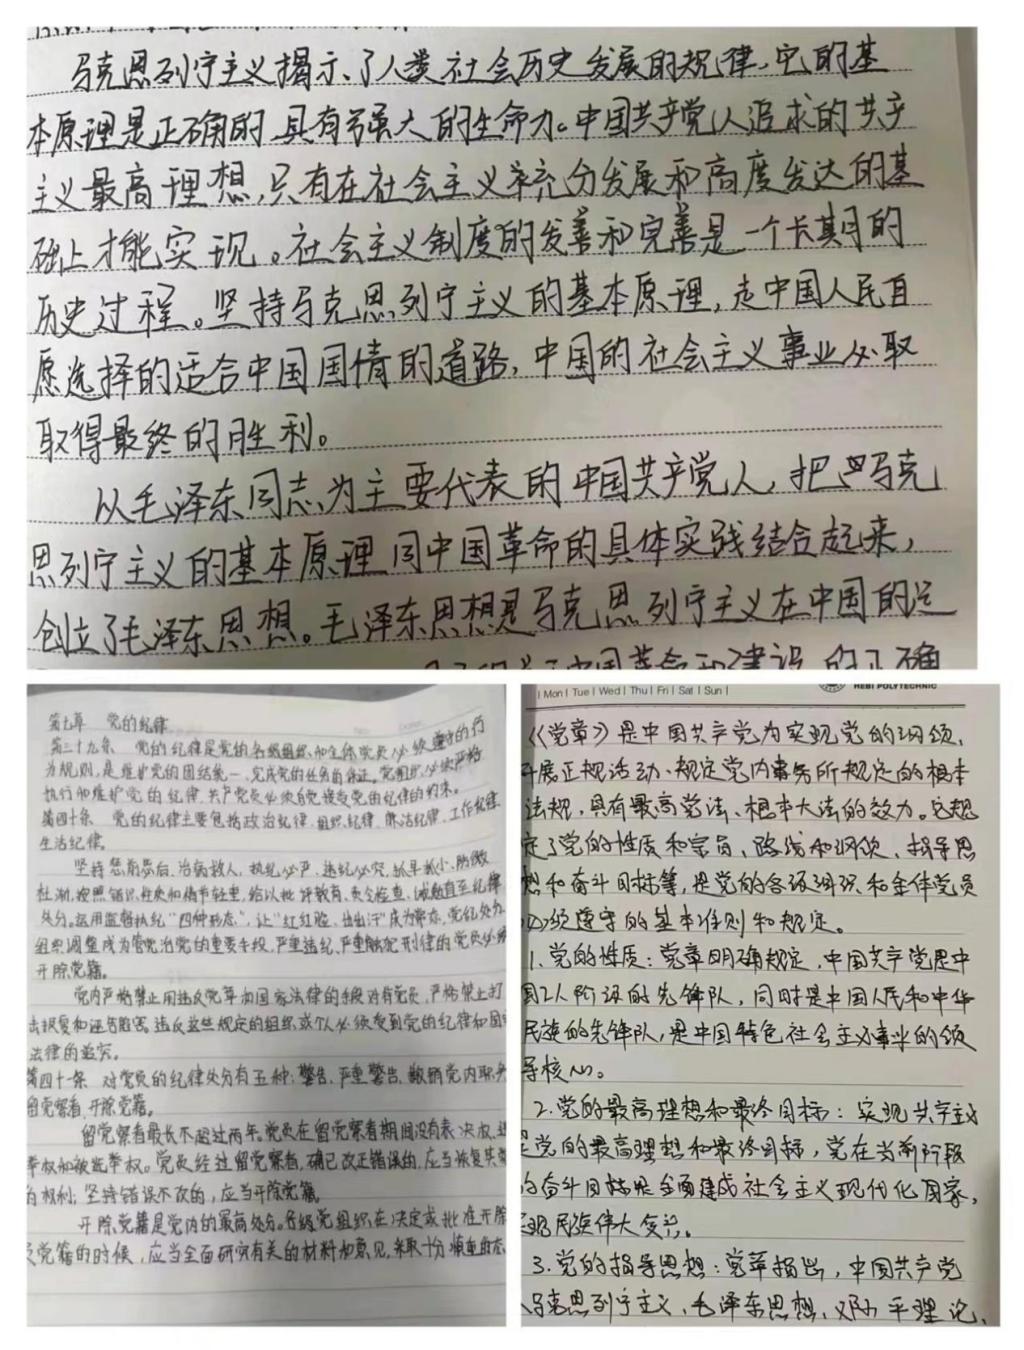 马克思列宁主义揭示了人类社会历史发展的规律,它的基
本原理是正确的,具有强大的生命力。中国共产党人追求的共产
主义最高理想,只有在社会主义充分发展和高度发达的基
础上才能实现。社会主义制度的发善和完善是一个长期的
历史过程。坚持马克思列宁主义的基本原理,走中国人民自
愿选择的适合中国国情的道路,中国的社会主义事业必取
取得最终的胜利。
以毛泽东同志为主要代表的中国共产党人,把马克
思列宁主义的基本原理同中国革命的具体实践结合起来,
创立了毛泽东思想。毛泽东思想是马克思列宁主义在中国的运
中国革命和建设的正确
第七章 党的纪律
第三十九条 党的纪律是党的各级组织和全体党员必须遵守的行
为规则,是维护党的团结统一、完成党的任务的保证。党组织必须严格
执行和维护党的纪律,共产党员必须自觉接受党的纪律的约束。
第四十条 党的纪律主要包括政治纪律、组织纪律、廉洁纪律、工作纪律、
生活纪律。
坚持惩前毖后、治病救人,执纪必严、违纪必究,抓早抓小、防微
杜渐,按照错误性质和情节轻重,给以批评教育、责令检查、诫勉直至纪律
处分。运用监督执纪“四种形态”,让“红红脸、出出汗”成为常态,党纪处分、
组织调整成为管党治党的重要手段,严重违纪、严重触犯刑律的党员必须
开除党籍。
党内严格禁止用违反党章和国家法律的手段对待党员,严格禁止打
击报复和诬告陷害。违反这些规定的组织或个人必须受到党的纪律和国
法律的追究。
第四十一条 对党员的纪律处分有五种:警告、严重警告、撤销党内职务、
留党察看、开除党籍。
留党察看最长不超过两年。党员在留党察看期间没有表决权、选
举权和被选举权。党员经过留党察看,确已改正错误的,应当恢复其党
的权利;坚持错误不改的,应当开除党籍。
开除党籍是党内的最高处分。各级党组织在决定或批准开除
党籍的时候,应当全面研究有关的材料和意见,采取十分慎重的态
| Mon | Tue | Wed | Thu | Fri | Sat | Sun |
HEBI POLYTECHNIC
《党章》是中国共产党为实现党的纲领、
开展正规活动、规定党内事务所规定的根本
法规,具有最高党法、根本大法的效力。它规
定了党的性质和宗旨、路线和纲领、指导思
想和奋斗目标等,是党的各级组织和全体党员
必须遵守的基本准则和规定。
1.党的性质:党章明确规定,中国共产党是中
国工人阶级的先锋队,同时是中国人民和中华
民族的先锋队,是中国特色社会主义事业的领
导核心。
2.党的最高理想和最终目标:实现共产主义
是党的最高理想和最终目标,党在当前阶段
的奋斗目标是全面建成社会主义现代化国家,
实现民族伟大复兴。
3.党的指导思想:党章指出,中国共产党
以马克思列宁主义、毛泽东思想、邓小平理论、